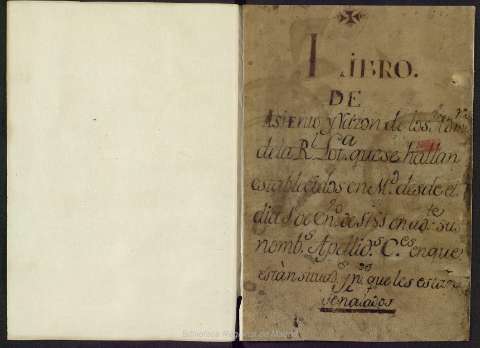 LIBRO.
DE
Asiento y Razon de los
de la Rl. Lota. que se hallan
establecidos en Md. desde el
dia 1 de En.o de en ade.te sus
nomb.s Apellid.s C.es en que
están situad.s y que les están
señalados
Biblioteca Regional de Madrid